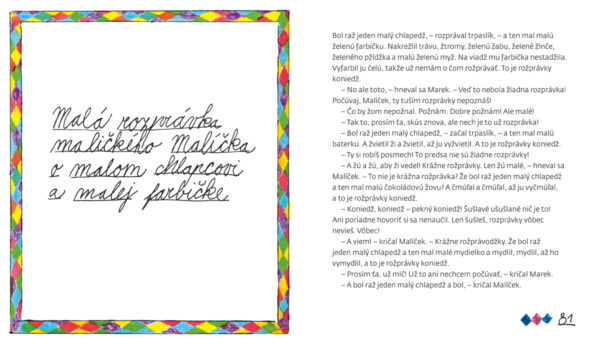 Malá rozprávka
maličkého Malíčka
o malom chlapcovi
a malej farbičke.
Bol raž jeden malý chlapedž, – rozprával trpaslík, – a ten mal malú
želenú farbičku. Nakrežlil trávu, žtromy, želenú žabu, želené žlnče,
želeného pžídžka a malú želenú myž. Na viadž mu farbička nestadžila.
Vyfarbil ju čelú, takže už nemám o čom rožprávať. To je rožprávky
koniedž.
– No ale toto, – hneval sa Marek. – Veď to nebola žiadna rozprávka!
Počúvaj, Malíček, ty tuším rozprávky nepoznáš!
– Čo by žom nepožnal. Požnám. Dobre požnám! Ale malé!
– Tak to, prosím ťa, skús znova, ale nech je to už rozprávka!
– Bol raž jeden malý chlapedž, – začal trpaslík, – a ten mal malú
baterku. A žvietil ži a žvietil, až ju vyžvietil. A to je rožprávky koniedž.
– Ty si robíš posmech! To predsa nie sú žiadne rozprávky!
– A žú a žú, aby ži vedel! Krážne rožprávky. Len žú malé, – hneval sa
Malíček. – To nie je krážna rožprávka? Že bol raž jeden malý chlapedž
a ten mal malú čokoládovú žovu? A čmúľal a čmúľal, až ju vyčmúľal,
a to je rožprávky koniedž.
– Koniedž, koniedž – pekný koniedž! Šušlavé ušušlané nič je to!
Ani poriadne hovoriť si sa nenaučil. Len šušleš, rozprávky vôbec
nevieš. Vôbec!
– A viem! – kričal Malíček. – Krážne rožprávodžky. Že bol raž
jeden malý chlapedž a ten mal malé mydielko a mydlil, mydlil, až ho
vymydlil, a to je rožprávky koniedž.
– Prosím ťa, už mlč! Už to ani nechcem počúvať, – kričal Marek.
– A bol raž jeden malý chlapedž a bol, – kričal Malíček.
81